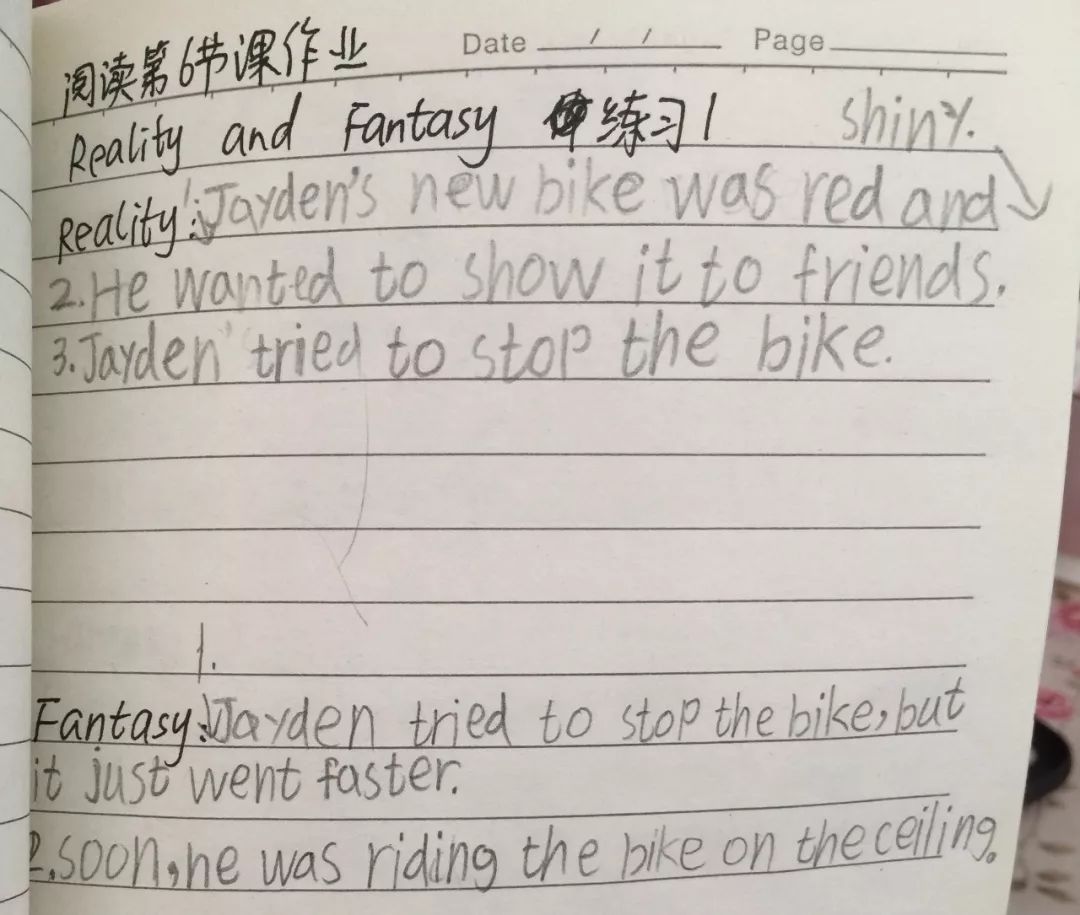 阅读第6节课作业
Date / / Page
Reality and Fantasy 练习1
shiny.
Reality: 1. Jayden's new bike was red and
2. He wanted to show it to friends.
3. Jayden tried to stop the bike.
1.
Fantasy: Jayden tried to stop the bike, but
it just went faster.
2. soon, he was riding the bike on the ceiling.